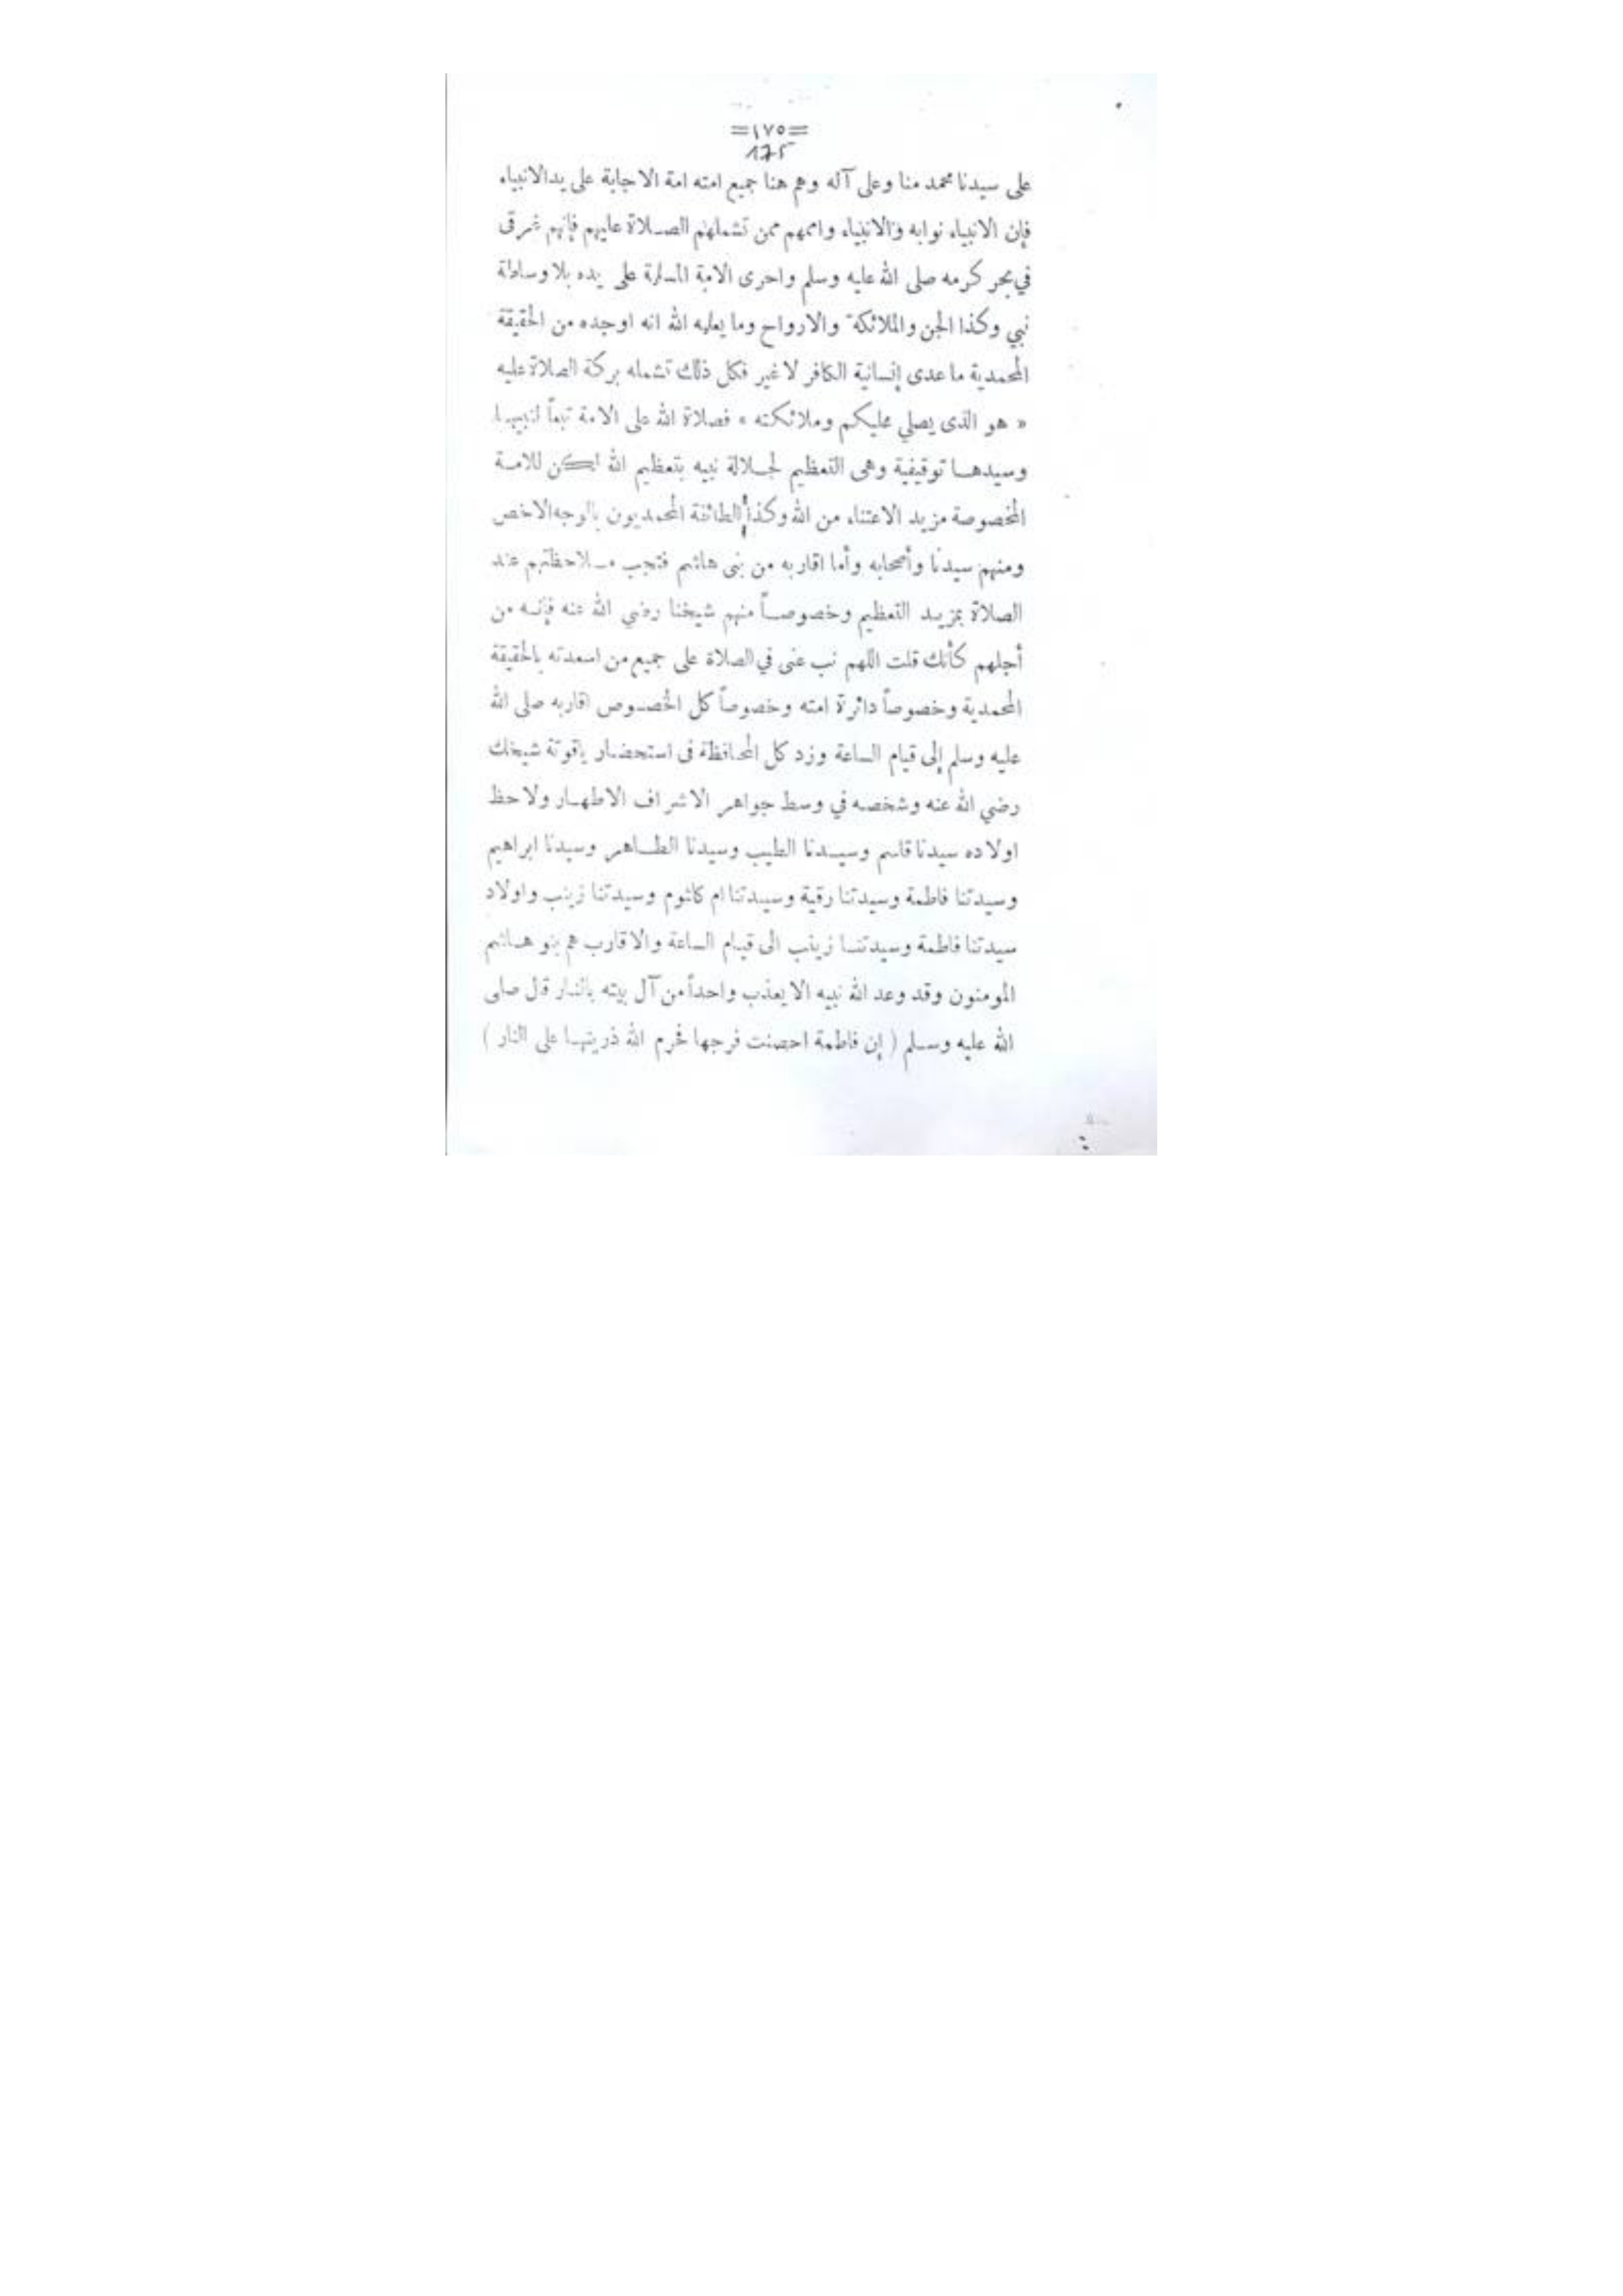 =١٧٥=
175
على سيدنا محمد منا وعلى آله وهم هنا جميع امته امة الاجابة على يدالانبياء
فإن الانبياء نوابه والانبياء واممهم ممن تشملهم الصلاة عليهم فإنهم غرقى
في بحر كرمه صلى الله عليه وسلم واحرى الامة المسلمة على يده بلا وساطة
نبي وكذا الجن والملائكة والارواح وما يعلمه الله انه اوجده من الحقيقة
المحمدية ما عدى إنسانية الكافر لا غير فكل ذلك تشمله بركة الصلاة عليه
« هو الذى يصلي عليكم وملائكته » فصلاة الله على الامة تبعاً لنبيها
وسيدها توقيفية وهى التعظيم لجلالة نبيه بتعظيم الله لكن للامة
المخصوصة مزيد الاعتناء من الله وكذا الطائفة المحمديون بالوجه الاخص
ومنهم سيدنا وأصحابه وأما اقاربه من بنى هاشم فتجب ملاحظتهم عند
الصلاة بمزيد التعظيم وخصوصاً منهم شيخنا رضي الله عنه فإنه من
أجلهم كأنك قلت اللهم نب عنى في الصلاة على جميع من اسعدته بالحقيقة
المحمدية وخصوصاً دائرة امته وخصوصاً كل الخصوص اقاربه صلى الله
عليه وسلم إلى قيام الساعة وزد كل المحافظة فى استحضار ياقوتة شيخك
رضي الله عنه وشخصه في وسط جواهر الاشراف الاطهار ولاحظ
اولاده سيدنا قاسم وسيدنا الطيب وسيدنا الطاهر وسيدنا ابراهيم
وسيدتنا فاطمة وسيدتنا رقية وسيدتنا ام كلثوم وسيدتنا زينب واولاد
سيدتنا فاطمة وسيدتنا زينب الى قيام الساعة والاقارب هم بنو هاشم
المومنون وقد وعد الله نبيه الا يعذب واحداً من آل بيته بالنار قال صلى
الله عليه وسلم ( إن فاطمة احصنت فرجها فحرم الله ذريتها على النار )